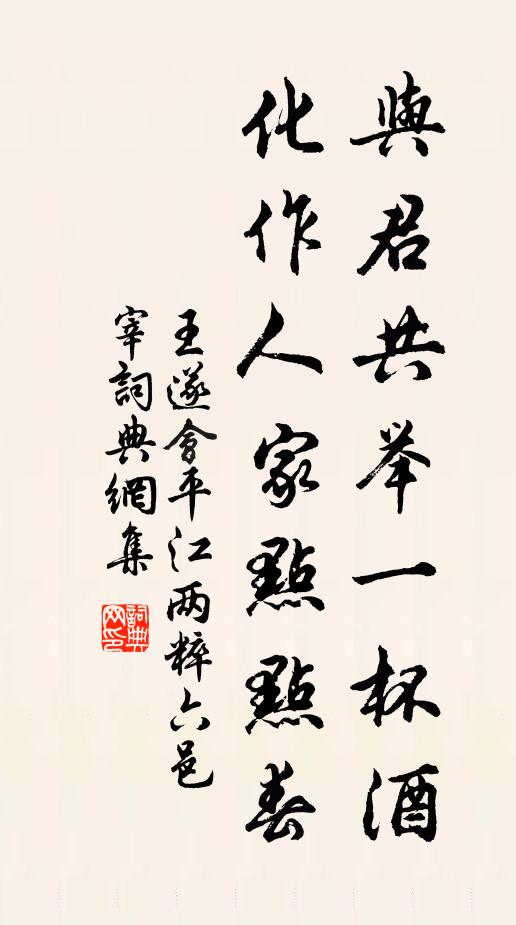 與君共举一杯酒
化作人家點點春
王遂會平江两粹六邑
宰詞典網集
詞典
网印